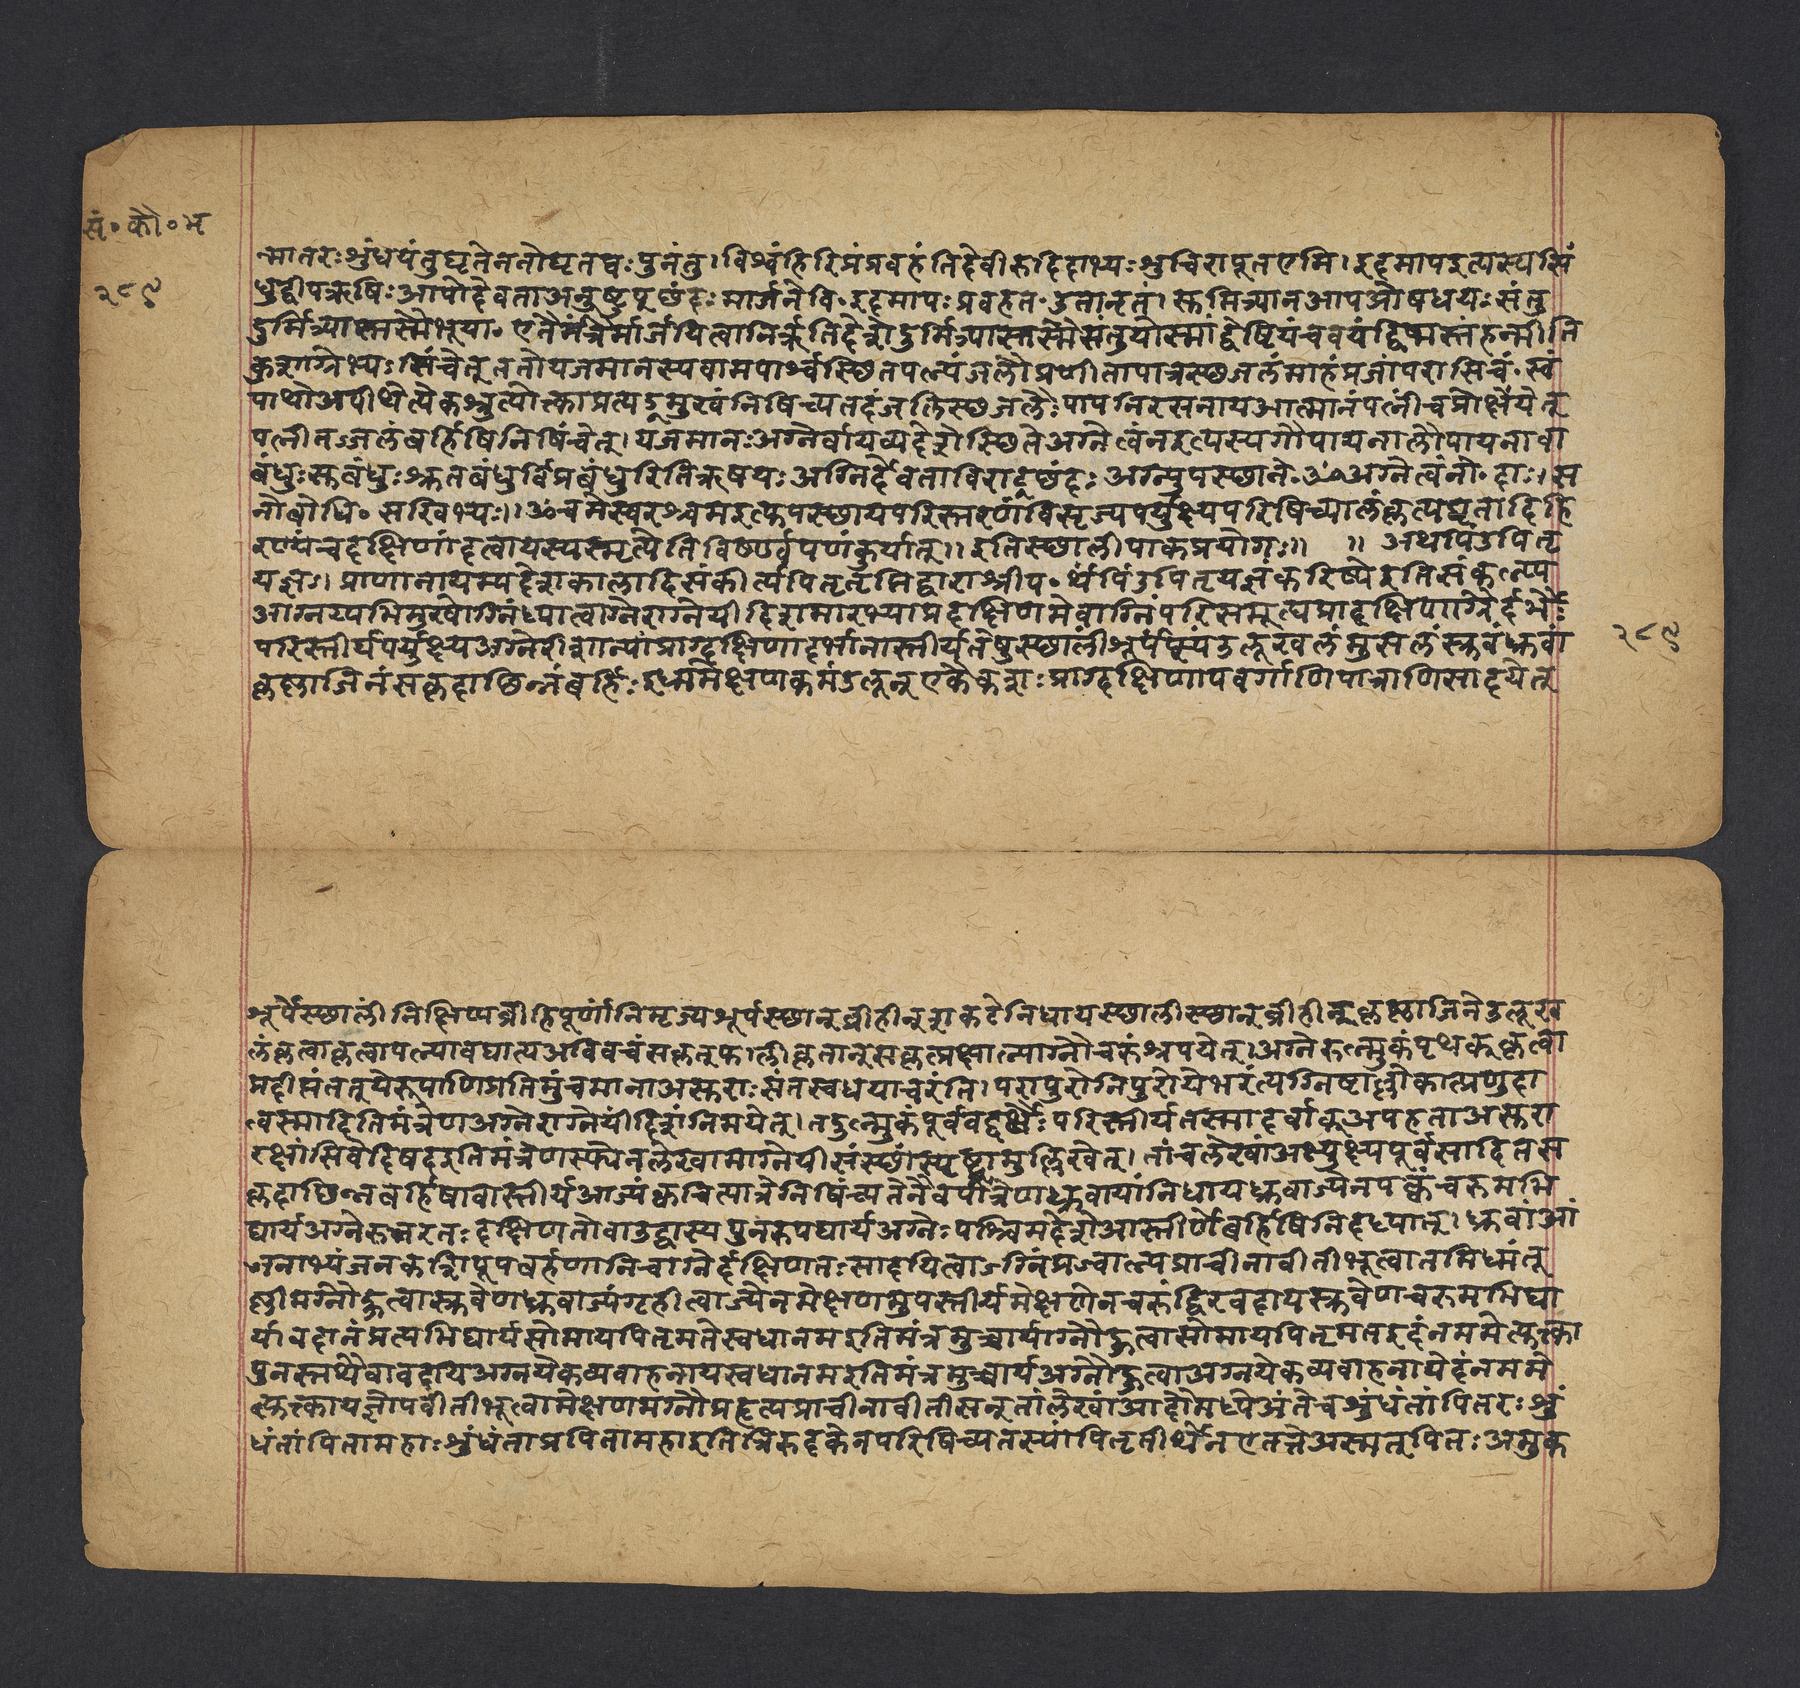 सं॰ कौ॰ भ
२८९
न्मातरःशुंधयंतुघृतेननोघृतप्वःपुनंतु। विश्वंहिरिप्रंप्रवहंतिदेवीरुदिदाभ्यःशुचिरापूतएमि। इदमापइत्यस्यसिं
धुद्वीपऋषिः आपोदेवताअनुष्टुप्छंदः मार्जनेवि॰ इदमापःप्रवहत॰ उतानृतं। सुमित्र्यानआपओषधयःसंतु
दुर्मित्र्यास्तस्मैभूया॰ एतैर्मंत्रैर्मार्जयित्वानिर्ऋतिदेशेदुर्मित्र्यास्तस्मैसंतुयोस्मांद्वेष्टियंचवयंद्विष्मस्तंहन्मीति
कुशाग्नेभ्यःसिंचेत् ततोयजमानस्यवामपार्श्वस्छितपत्न्यंजलौप्रणीतापात्रस्छजलंमाहंप्रजांपरासिचं॰ स्वं
पाथोअपीथेत्येकश्रुत्योक्त्वाप्रत्यङ्मुखंनिषिच्यतदंजलिस्छजलैःपापनिरसनायआत्मानंपत्नींचप्रोक्षयेत्
पत्नीतज्जलंबर्हिषिनिषिंचेत्। यजमानःअग्नेर्वायव्यदेशेस्छितेअग्नेत्वंनइत्यस्यगौपायनालौपायनावा
बंधुःसुबंधुःश्रुतबंधुर्विप्रबंधुरितिऋषयः अग्निर्देवताविराट्छंदः अग्न्युपस्छाने॰ ॐअग्नेत्वंनो॰ दाः। स
नोबोधि॰ सखिभ्यः।। ॐचमेस्वरश्चमइत्युपस्छायपरिस्तरणंविसृज्यपर्युक्ष्यपरिषिच्यालंकृत्यघृतांदिहि
रण्यंचदक्षिणांदत्वायस्यस्मृत्येतिविष्ण्वर्पणंकुर्यात्।। इतिस्छालीपाकप्रयोगः।। ।। अथपिंडपितृ
यज्ञः। प्राणानायम्यदेशकालादिसंकीर्त्यपितृतृप्तिद्वाराश्रीप॰ र्थंपिंडपितृयज्ञंकरिष्येइतिसंकल्प्य
आग्नय्यभिमुखोग्निंध्यात्वाग्नेराग्नेयीदिशमारभ्याप्रदक्षिणमेवाग्निंपरिसमूह्यप्रादक्षिणाग्रैर्दर्भैः
परिस्तीर्यपर्युक्ष्यअग्नेरीशान्यांप्राग्दक्षिणादर्भानास्तीर्यतेषुस्छालींशूर्पंस्फ्यंउलूखलंमुसलंस्रुवंध्रुवां
कृष्णाजिनंसकृदाछिन्नंबर्हिः इध्मंमेक्षणंकमंडलून्एकैकशःप्राग्दक्षिणापवर्गाणिपात्राणिसादयेत्
२८९
शूर्पेस्छालीं निक्षिप्यव्रीहिपूर्णांनिमृज्यशूर्पस्छान्व्रीहीन्शकटेनिधायस्छालीस्छान्व्रीहीन्कृष्णाजिनेउलूख
लंकृत्वाकृत्वापत्न्यावघात्यअविवचंसकृत्फालीकृतान्सकृत्प्रक्षाल्याग्नौचरुंश्रपयेत्। अग्नेरुल्मुकंपृथक्कृत्वा
प्रदीप्तंतत्येरूपाणिप्रतिमुंचमानाअसुराःसंतस्वधयाचरंति। परापुरोनिपुरोयेभरंत्यग्निष्टाल्लोकात्प्रणुदा
त्वस्मादितिमंत्रेणअग्नेराग्नेयींदिशंग्निमयेत्। तदुल्मुकंपूर्ववद्दर्भैःपरिस्तीर्यतस्मादर्वाक्अपहताअसुरा
रक्षांसिवेदिषदइतिमंत्रेणस्फ्येनलेखामाग्नेयीसंस्छांस्पष्टामुल्लिखेत्। तांचलेखांअभ्युक्ष्यपूर्वसादितस
कृदाछिन्नबर्हिषावास्तीर्यआज्यंकचित्पात्रेनिषिंच्यतेनैवपात्रेणध्रुवायांनिधायध्रुवाज्येनपक्वंचरुमभि
घार्यअग्नेरुत्तरतःदक्षिणतोवाउद्वास्यपुनरुपघार्यअग्नेःपश्चिमदेशेआस्तीर्णेबर्हिषिनिदध्यात्। ध्रुवांआं
जनाभ्यंजनकशिपूपबर्हणानिचाग्नेर्दक्षिणतःसादयित्वाऽग्निंप्रज्वाल्यप्राचीनावीतीभूत्वातमिध्मंतू
ष्णीमग्नौहुत्वास्रुवेणध्रुवाज्यंगृहीत्वाज्येनमेक्षणमुपस्तीर्यमेक्षणेनचरुंद्विरवदायस्रुवेणचरुमभिघा
र्यावदानंप्रत्यभिघार्यसोमायपितृमतेस्वधानमइतिमंत्रमुच्चार्याग्नौहुत्वासोमायपितृमतइदंनममेत्युक्त्वा
पुनस्तथैवावदायअग्नयेकव्यवाहनायस्वधानमइतिमंत्रमुच्चार्यअग्नौहुत्वाअग्नयेकव्यवाहनायेदंनममे
त्युक्त्वायज्ञोपवीतीभूत्वामेक्षणमग्नौप्रहृत्यप्राचीनावीतीसन्तांलेखांआदौमध्येअंतेचशुंधंतांपितरःशुं
धंतांपितामहाःशुंधंताप्रपितामहाइतित्रिरुदकेनपरिषिच्यतस्यांपितृतीर्थेनएतत्तेअस्मत्पितः अमुक